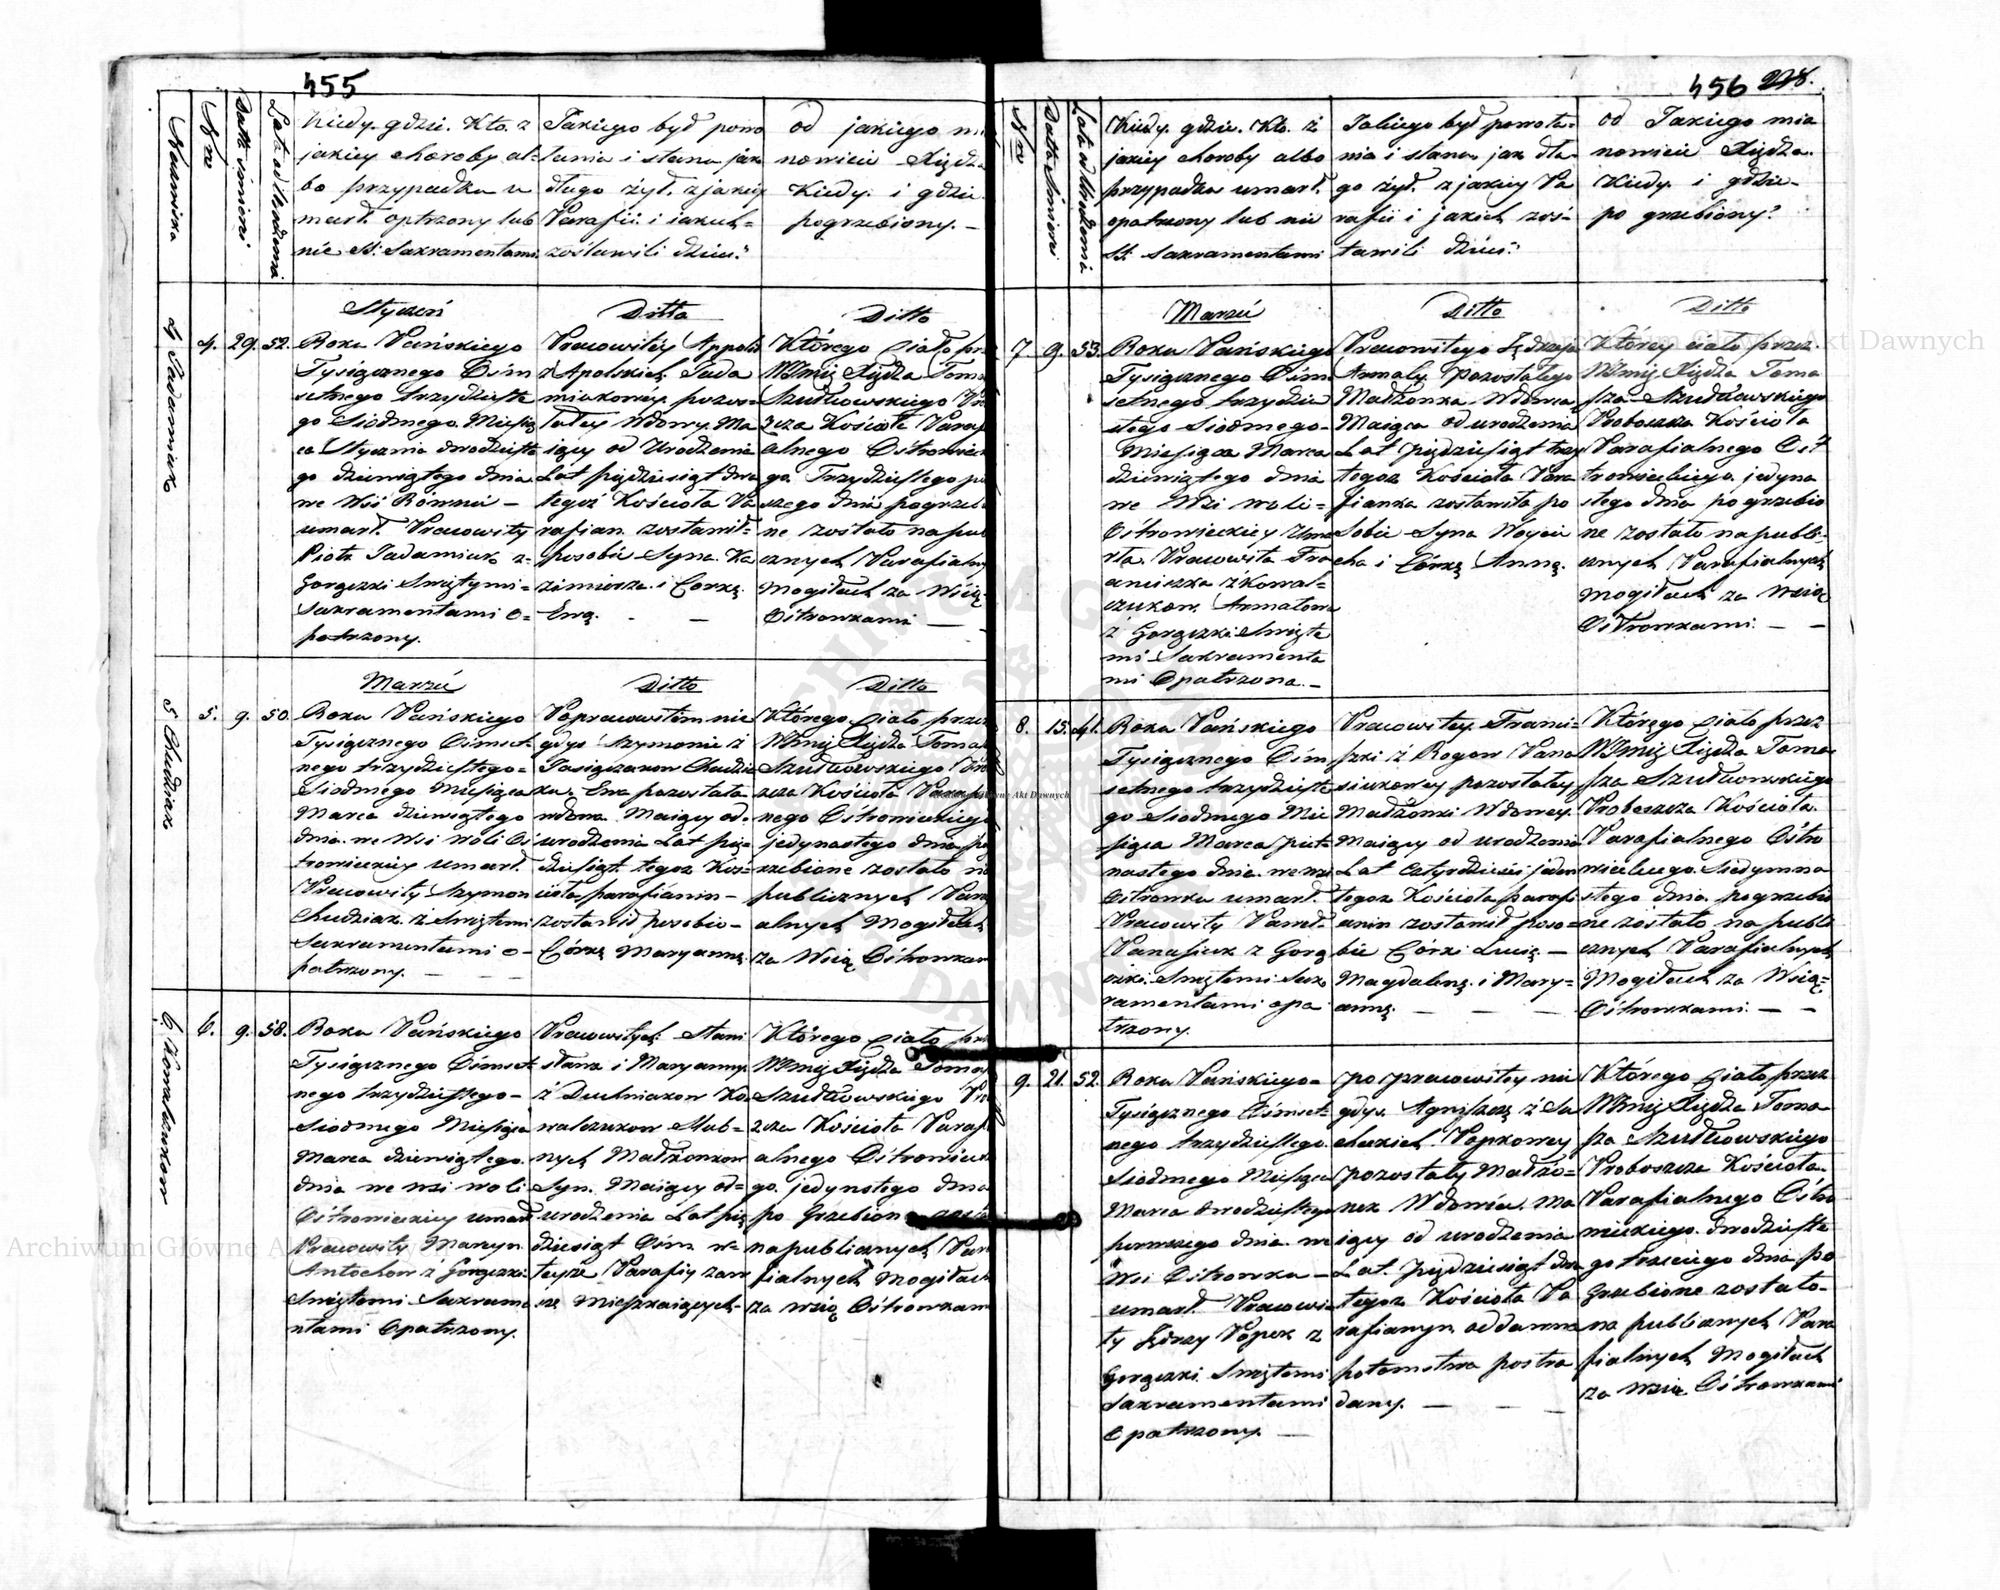 455
Nazwiska
Nro
Datta śmierci
Lata od Urodzenia
Kiedy. gdzie. Kto. z
jakiey choroby al-
bo przypadku u
marł. optrzony lub
nie SS: Sakramentami
Jakiego był powo
łania i stanu jak
długo żył. z jakiey
Parafii: i iakich=
zostawili dzieci?
od jakiego mi
nowicie Xiędza
Kiedy. i gdzie.
pogrzebiony. -
4 Sadamiuk
4.
29.
52.
Styczeń
Roku Pańskiego
Tysiącznego Ośm
setnego trzydzieste
go Siódmego. Miesią
ca Stycznia dwudzieste
go dziewiątego dnia
we Wsi Równie -
umarł. Pracowity
Piotr Sadamiuk z-
Gorączki Swiętymi-
Sakramentami o-
patrzony.
Ditto
Pracowitéy Appoli
z Apolskich Sada
miukowey pozos-
tałey Wdowy. Ma
iący od Urodzenia
Lat pięćdziesiąt dwa
tegoż Kościoła Pa
rafian. zostawił-
posobie Syna. Ka
zimierza. i Corkę.
Ewę. - -
Ditto
Którego Ciało prz
WJmię Xiędza Toma
Szułkowskiego Pro
szcza Kościoła Paraf
alnego Ostrowieck
go. Trzydziestego pi
szego dnii pogrzeb
ne zostało napub
cznych Parafialny
Mogiłach za Wsią.
Ostrowkami — -
5 Chudziak
5.
9.
50.
Marzec
Roku Pańskiego
Tysiącznego Ośmset-
nego trzydziestego-
Siodmego Miesiąca
Marca dziewiątego
dnia. we Wsi Woli Os
trowieckiey umarł.
Pracowity Szymon
Chudziak. z Swiętemi
Sakramentami o-
patrzony. — -
Ditto
Popracowitém nie
gdys Szymonie z
Jasiączakow Chudzia
ku. Ewa pozostała
wdowa. Maiący od.
urodzenia Lat pię-
dziesiąt. tegoz Koś-
cioła parafianin-
zostawił posobie-
Córkę Maryannę.
Ditto
Którego Ciało prze
WJmię Xiędza Toma
Szułkowskiego Pro
szcza Kościoła Parafi
nego Ostrowieckiego
jedynastego dnia po
rzebione zostało n
publicznych Para
alnych Mogiłach
za Wsią Ostrowkam
6. Kowalczukow
6.
9.
58.
Roku Pańskiego
Tysiącznego Ośmset
nego trzydziestego-
Siodmego Miesiąca
Marca dziewiątego.
dnia we wsi woli
Ostrowieckiey umarł
Pracowity Marcyn
Antochow z Gorączki.
Swiętemi Sakrame
ntami Opatrzony.
Pracowitych Stani
sława i Maryanny.
z Duchniakow Ko
walczukow Slub-
nych Małżonkow
Syn. Maiący od-
urodzenia Lat pię
dziesiąt Ośm w-
teyże Parafiy zaw
sze Mieszkaiących-
Którego Ciało prz
WJmię Xiędza Toma
Szułkowskiego Pro
szcza Kościoła Paraf
alnego Ostrowieck
go. jedynstego dnia
po Grzebione zosta
na publicznych Par
fialnych mogiłach
za wsią Ostrowkam
456
228.
Nro
Datta śmierci
Lata od Urodzenia
Kiedy. gdzie. Kto. z
jakiey choroby albo
przypadku umarł.
opatrzony lub nie
SS: Sakramentami
Jakiego był powoła-
nia i stanu. jak dłu-
go żył. z jakiey Pa
rafii i jakich zos-
tawili dzieci?
od Jakiego mia
nowicie Xiędza.
Kiedy i gdzie-
po grzebiony?
7
9.
53.
Marzec
Roku Pańskiego
Tysiącznego Ośm
setnego trzydzie
stego Siodmego-
Miesiąca Marca
dziewiątego dnia
we Wsi woli-
Ostrowieckiey Uma
rła. Pracowita Fra
nciszka z Kowal-
czukow. Armatowa
z Gorączki Swięte
mi Sakramenta
mi Opatrzona. -
Ditto
Pracowitego Jędrzeja
Armaty. pozostałego
Małżonka Wdowa
Maiąca od urodzenia
Lat pięćdziesiąt trzy
tegoz Kościoła Para
fianka zostawiła po
Sobie Syna Woycie
cha i Córkę Annę.
Ditto
Którey ciało przez.
WJmię Xiędza Toma
sza Szułkowskiego
Proboszcza Kościoła
Parafialnego Ost
trowieckiego. jedyna
stego dnia pogrzebio
ne zostało na publi-
cznych Parafialnych
mogiłach za Wsią
Ostrowkami. — -
8.
15.
41.
Roku Pańskiego
Tysiącznego Ośm
setnego trzydzieste
go Siodmego Mie
siąca Marca pietn
nastego dnia. we wsi
Ostrowku umarł.
Pracowity Paweł-
Panasiuk z Gorą
czki. Swiętemi Sak
ramentami opa
trzony.
Pracowitey. Franci-
szki z Rogow Pana
siukowey pozostałey
Małżonki Wdowy.
Maiący od urodzenia
Lat Czterdzieści jeden
tegoz Kościoła parafi
anin zostawił poso-
bie Córki Lucię. —
Magdalenę. i Mary-
annę. — — -
Którego Ciało przez
WJmię Xiędza Toma-
sza Szułkowskiego
Proboszcza Kościoła
Parafialnego Ostro
wieckiego. Siedymna
stego dnia. pogrzebio
ne zostało na publi
cznych Parafialnych
Mogiłach za Wsią-
Ostrowkami. — -
9.
21.
52.
Roku Pańskiego-
Tysiącznego Ośmset-
nego trzydziestego
Siodmego Miesiąca
Marca dwudziestego
pierwszego dnia. we
Wsi Ostrowku —
umarł. Pracowi
ty Jędrzy Popek z
Gorączki. Swiętemi
Sakramentami
Opatrzony. —
po pracowitey nie
gdys. Agnieszcę z Sa
chukich Popkowey
pozostały Małżo-
nek Wdowiec. Ma
iący od urodzenia
Lat. pięćdziesiąt dwa
tegoz Kościoła Pa
rafianyn. oddawna
potomstwa postra
dany. — - -
Którego Ciało przez
WJmię Xiędza Toma
sza Szułkowskiego
Proboszcza Kościoła.
Parafialnego Ostro
wieckiego. dwudzieste
go trzeciego dnia po
Grzebione zostało-
na publicznych Para
fialnych Mogiłach
za Wsią Ostrowkami
Archiwum Główne Akt Dawnych